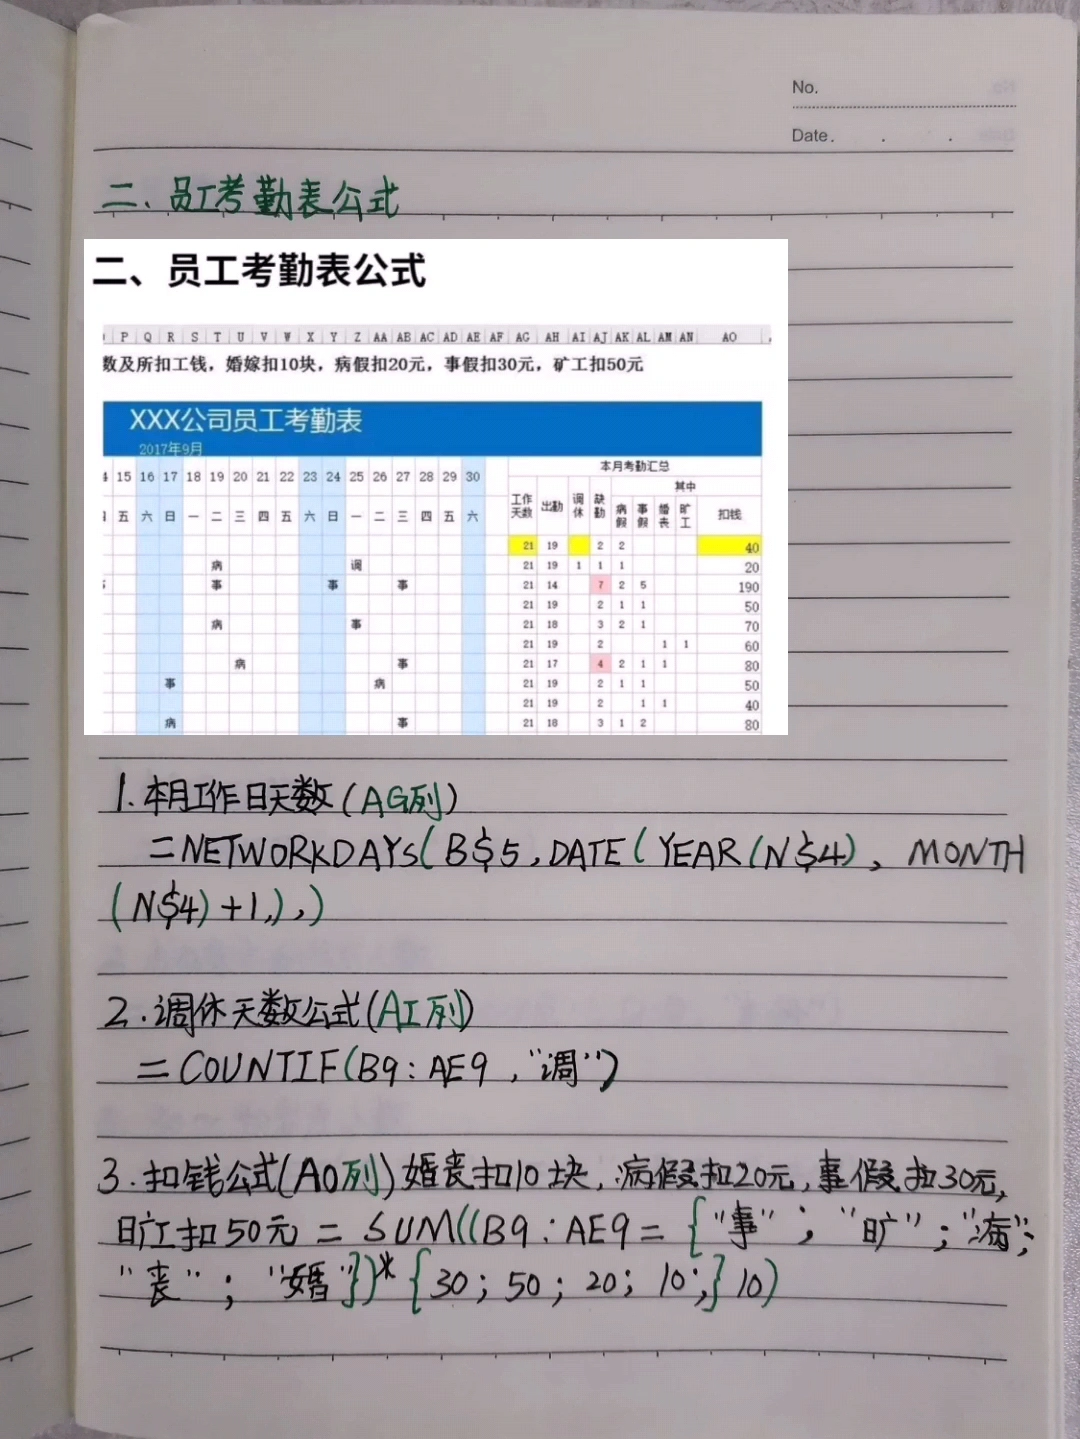 No.
Date. . .
二、员工考勤表公式
二、员工考勤表公式
P Q R S T U V W X Y Z AA AB AC AD AE AF AG AH AI AJ AK AL AM AN AO
数及所扣工钱，婚嫁扣10块，病假扣20元，事假扣30元，矿工扣50元
XXX公司员工考勤表
2017年9月
本月考勤汇总
15 16 17 18 19 20 21 22 23 24 25 26 27 28 29 30
其中
五 六 日 一 二 三 四 五 六 日 一 二 三 四 五 六 工作天数 出勤 调休 缺勤 病假 事假 婚丧 旷工 扣钱
21 19 2 2 40
病 调 21 19 1 1 1 20
事 事 事 21 14 7 2 5 190
21 19 2 1 1 50
病 事 21 18 3 2 1 70
21 19 2 1 1 60
病 事 21 17 4 2 1 1 80
事 病 21 19 2 1 1 50
21 19 2 1 1 40
病 事 21 18 3 1 2 80
1.本月工作日天数(AG列)
=NETWORKDAYS(B$5,DATE(YEAR(N$4), MONTH
(N$4)+1,),)
2.调休天数公式(AI列)
=COUNTIF(B9:AE9,"调")
3.扣钱公式(AO列)婚丧扣10块,病假扣20元,事假扣30元,
旷工扣50元=SUM((B9:AE9={"事";"旷";"病";
"丧";"婚"})*{30;50;20;10;}10)